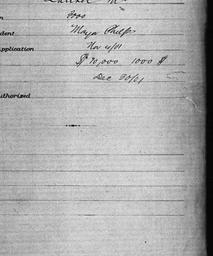 3000
dent Maya Phelps
pplication Nov 4/01
$ 70,000 1000 $
Dec 30/01
uthorized